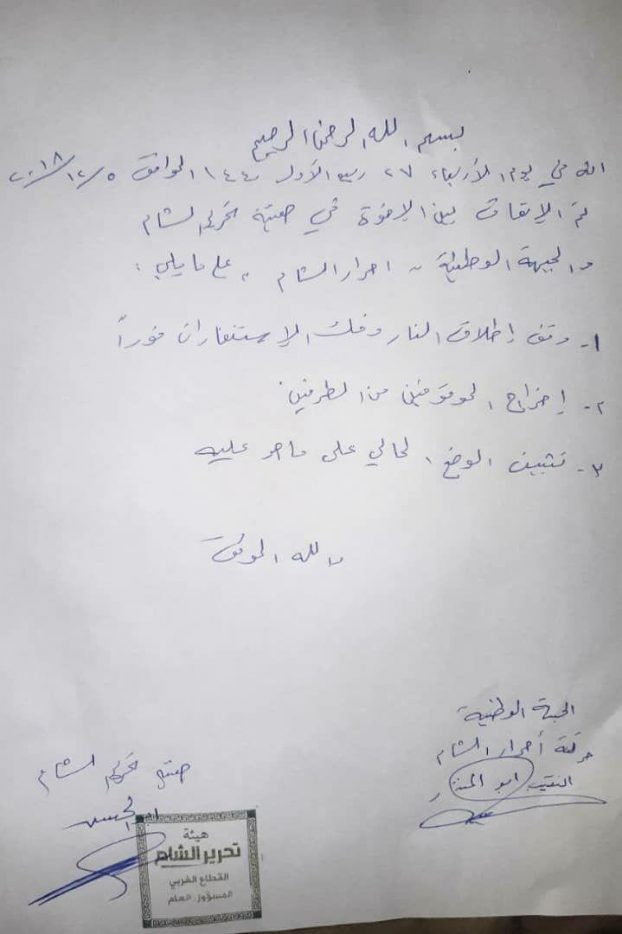 بسم الله الرحمن الرحيم
انه في يوم الأربعاء ٢٧ ربيع الأول ١٤٤٠ الموافق ٢٠١٨/١٢/٥
تم الإتفاق بين الإخوة في هيئة تحرير الشام
والجبهة الوطنية - احرار الشام - على ما يلي :
١- وقف إطلاق النار وفك الإستنفارات فوراً
٢- إخراج الموقوفين من الطرفين
٣- تثبيت الوضع الحالي على ما هو عليه
والله الموفق
الجبهة الوطنية
حركة أحرار الشام
النقيب ابو المنذر
هيئة تحرير الشام
هيئة
تحرير الشام
القطاع الغربي
المسؤول العام